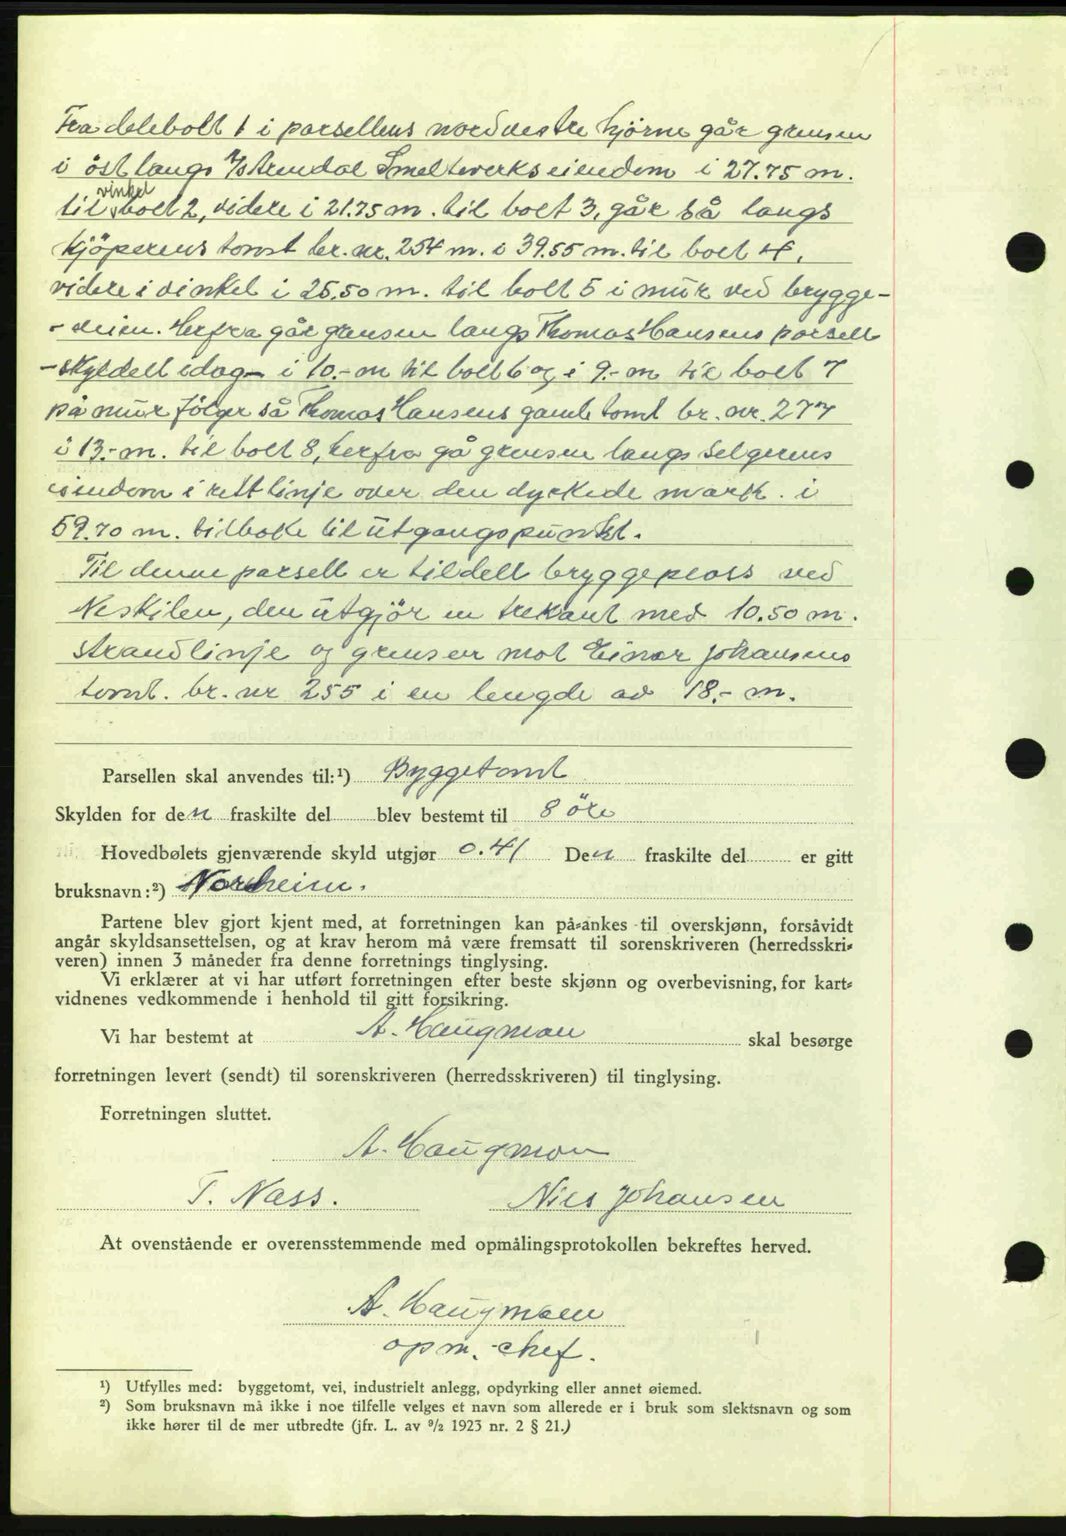 Fra delebolt 1 i parsellens nordvestre hjörne går grensen
i öst langs A/S Arendal Smelteverks eiendom i 27.75 m.
vinkel
til bolt 2, videre i 21.75 m. til bolt 3, går så langs
kjöperens tomt br. nr. 254 m. i 39.55 m. til bolt 4,
videre i vinkel i 25.50 m. til bolt 5 i mur ved brygge-
-veien. Herfra går grensen langs Thomas Hansens parsell
-skyldelt idag- i 10.- m til bolt 6 og i 9.- m til bolt 7
på mur følger så Thomas Hansens gamle tomt br. nr. 277
i 13.- m. til bolt 8, herfra gå grensen langs selgerens
eiendom i rett linje over den dyrkede mark. i
59.70 m. tilbake til utgangspunkt.
Til denne parsell er tildelt bryggeplass ved
Neskilen, den utgjör en trekant med 10.50 m.
strandlinje og grenser mot Einar Johansens
tomt. br. nr 255 i en lengde av 18.- m.
Parsellen skal anvendes til:¹) Byggetomt
Skylden for den fraskilte del blev bestemt til 8 öre
Hovedbølets gjenværende skyld utgjør 0.41 Den fraskilte del er gitt
bruksnavn:²) Norheim.
Partene blev gjort kjent med, at forretningen kan på-ankes til overskjønn, forsåvidt
angår skyldsansettelsen, og at krav herom må være fremsatt til sorenskriveren (herredsskri-
veren) innen 3 måneder fra denne forretnings tinglysing.
Vi erklærer at vi har utført forretningen efter beste skjønn og overbevisning, for kart-
vidnenes vedkommende i henhold til gitt forsikring.
Vi har bestemt at A. Haugman skal besørge
forretningen levert (sendt) til sorenskriveren (herredsskriveren) til tinglysing.
Forretningen sluttet.
A. Haugman
T. Nass. Nils Johansen
At ovenstående er overensstemmende med opmålingsprotokollen bekreftes herved.
A. Haugman
opm. chef.
¹) Utfylles med: byggetomt, vei, industrielt anlegg, opdyrking eller annet øiemed.
²) Som bruksnavn må ikke i noe tilfelle velges et navn som allerede er i bruk som slektsnavn og som
ikke hører til de mer utbredte (jfr. L. av 9/2 1923 nr. 2 § 21.)